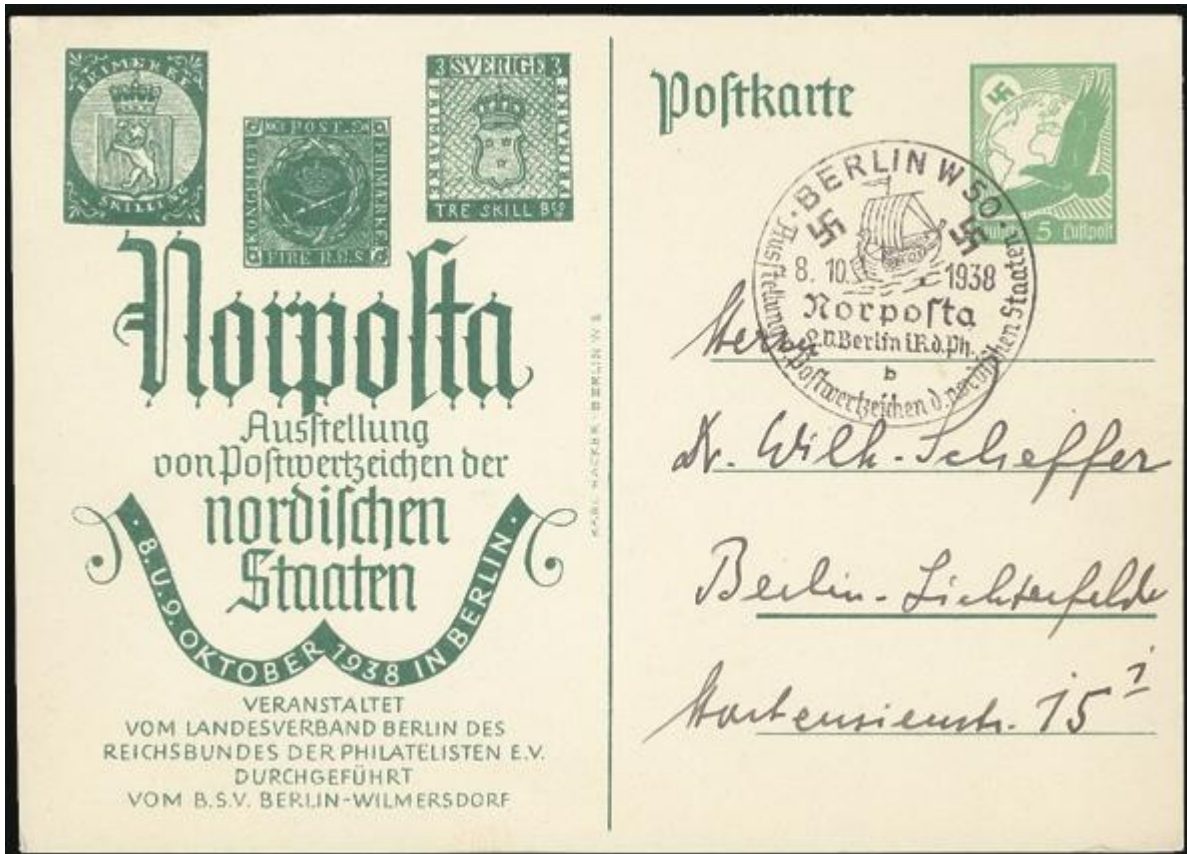 FRIMERKE
SKILLING
KGL POST.
FRIMÆRKE
KONGELIGT
FIRE R.B.S.
3 SVERIGE 3
FRIMÄRKE
TRE SKILL Bco
Norposta
Ausstellung
von Postwertzeichen der
nordischen
Staaten
· 8. U. 9. OKTOBER 1938 IN BERLIN ·
VERANSTALTET
VOM LANDESVERBAND BERLIN DES
REICHSBUNDES DER PHILATELISTEN E.V.
DURCHGEFÜHRT
VOM B.S.V. BERLIN-WILMERSDORF
KARL HACKER · BERLIN W 8
Postkarte
5 Luftpost
· BERLIN W 50 ·
8. 10. 1938
Norposta
L.V. Berlin i.R.d.Ph.
b
Ausstellung v. Postwertzeichen d. nordischen Staaten
Herrn
Dr. Wilh. Scheffer
Berlin-Lichterfelde
Hortensienstr. 15 I